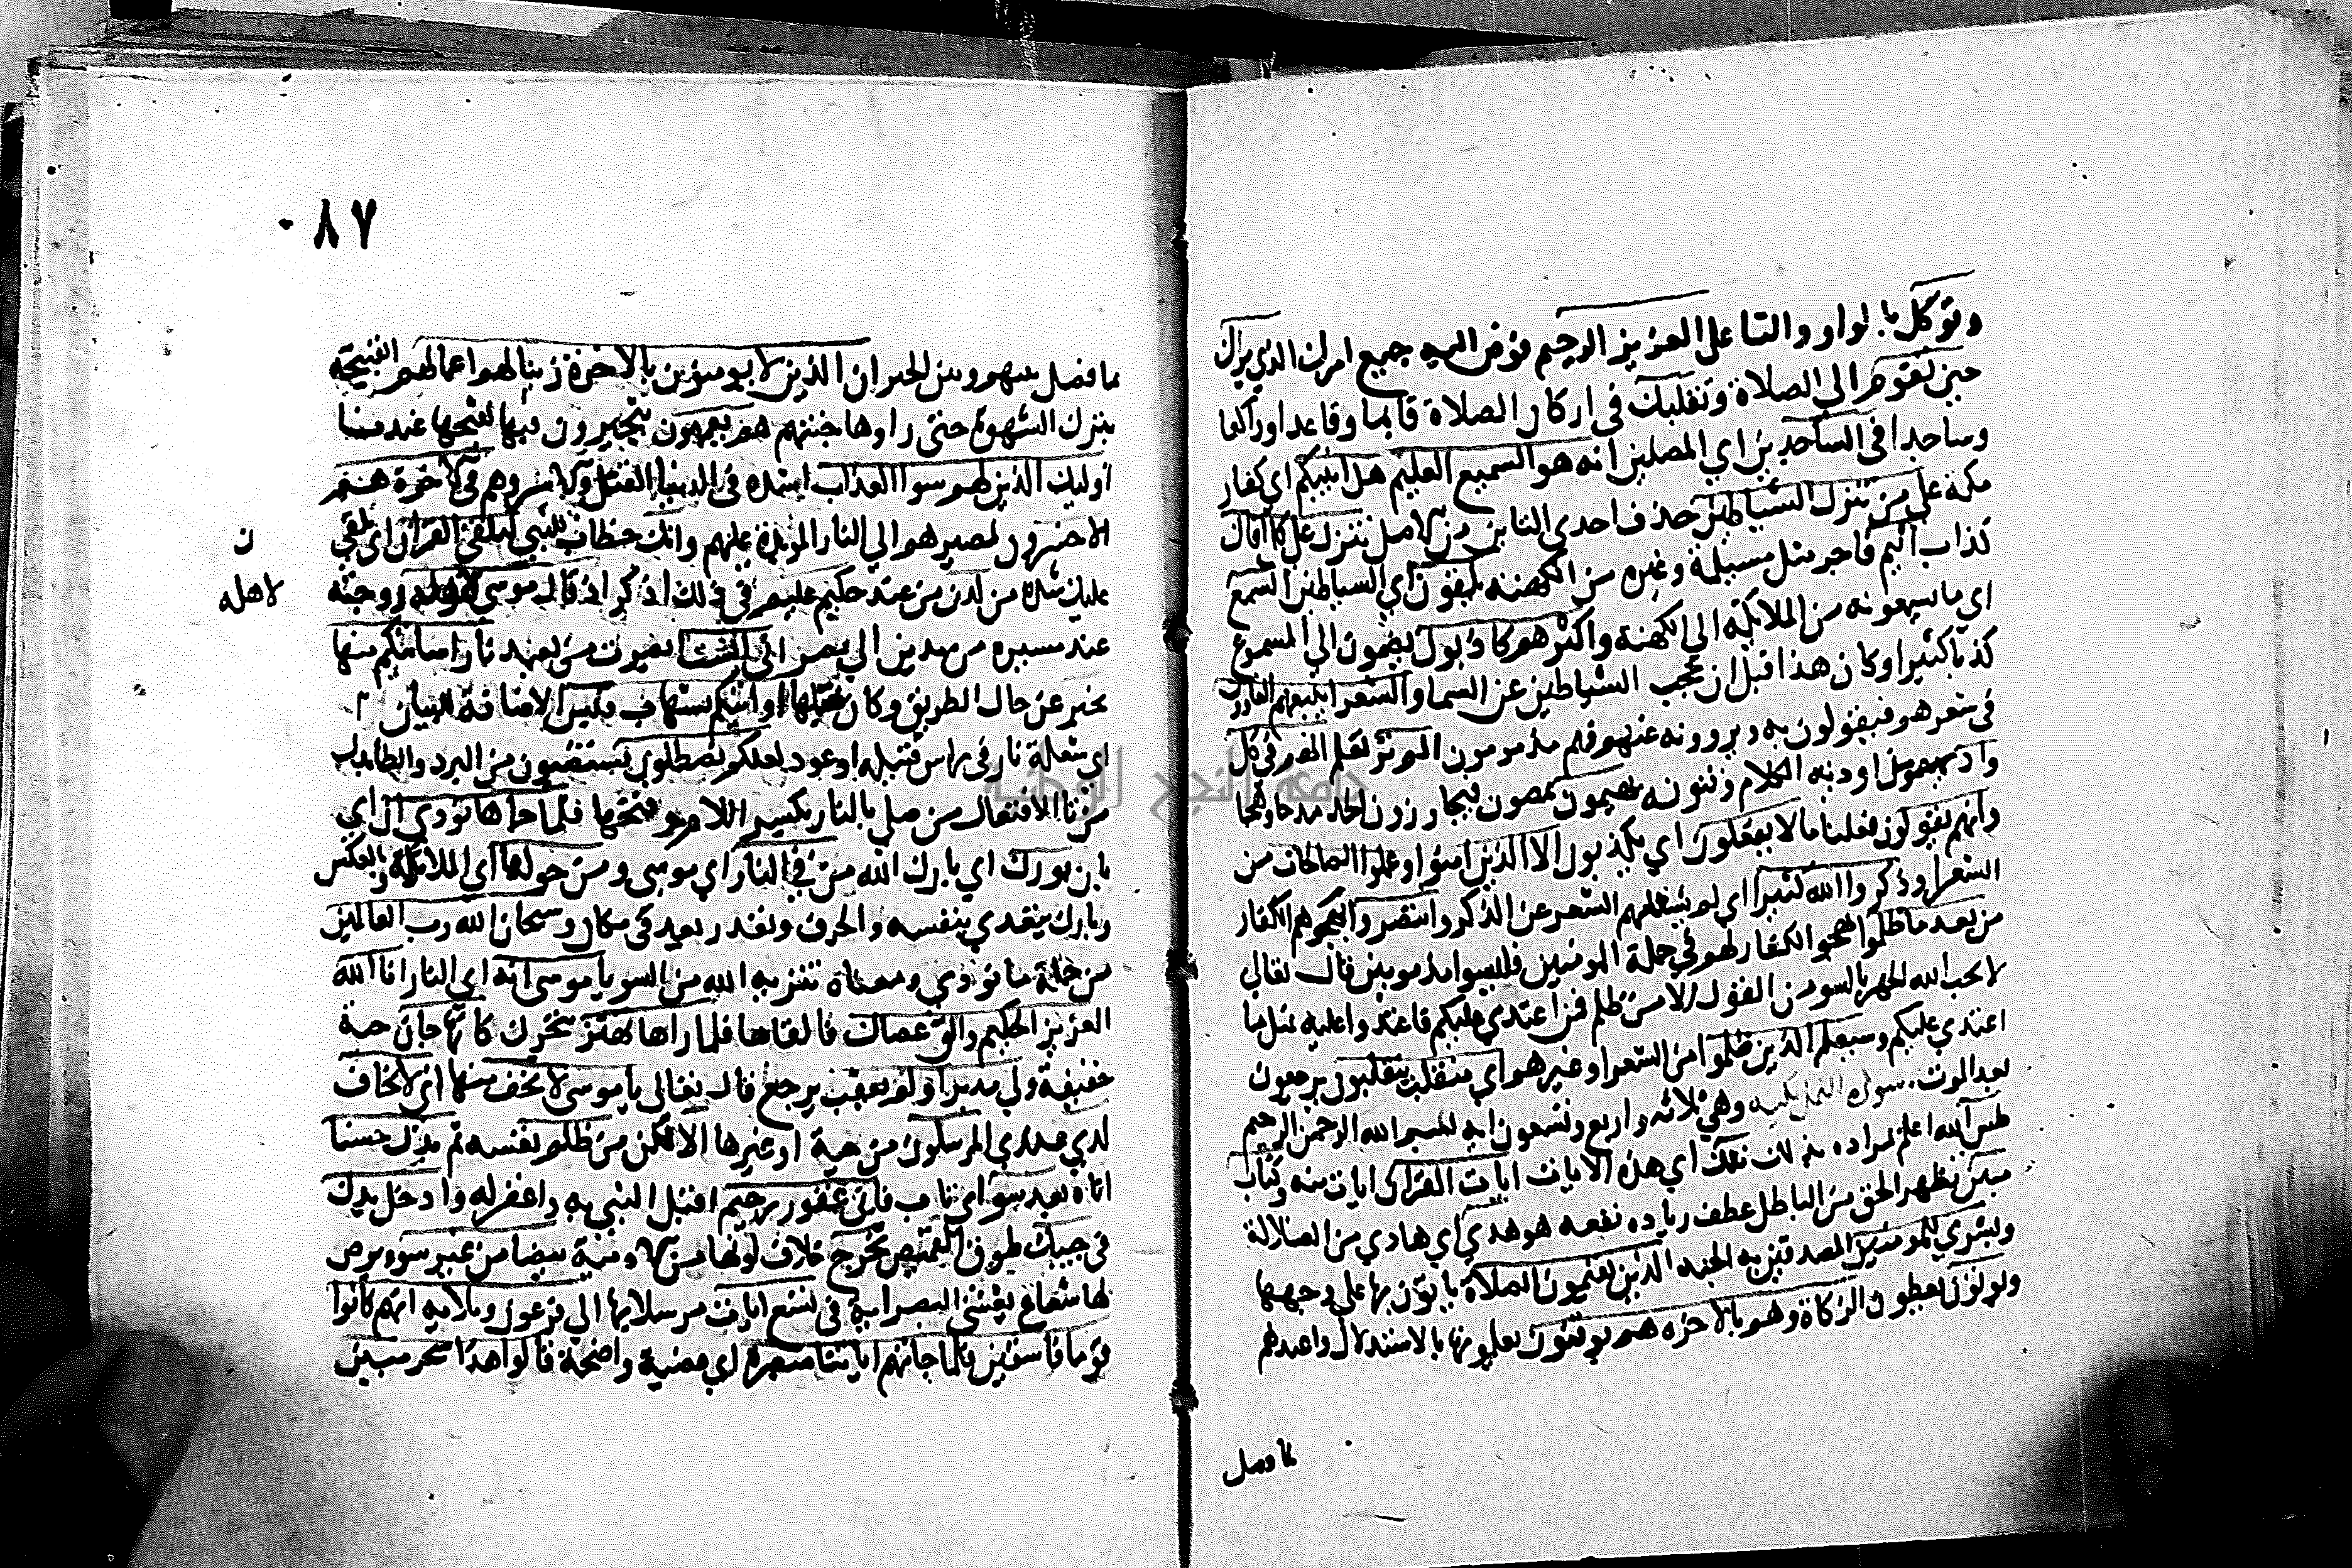 وتوكل بالواو والتا على العزيز الرحيم فوض اليه جميع امرك الذي يراك
حين تقوم الي الصلاة وتقلبك في اركان الصلاة قايما وقاعدا وراكعا
وساجدا في الساجدين اي المصلين انه هو السميع العليم هل انبيكم اي كفار
مكه علي من تنزل الشياطين حذف احدى التايين من الاصل تنزل على كل افاك
كذاب اثيم فاجر مثل مسيلمة وغيره من الكهنه يلقون اي الشياطين السمع
اي ما يسمعونه من الملائكة الي الكهنة واكثرهم كاذبون يضمون الي المسموع
كذبا كثيرا وكان هذا قبل ان تحجب الشياطين عن السما والشعرا يتبعهم الغاون
في شعرهم فيقولون به ويروونه عنهم فهم مذمومون الم تر تعلم انهم في كل
واد من اودية الكلام وفنونه يهيمون يمضون فيجاوزون الحد مدحا وهجا
وانهم يقولون فعلنا ما لا يفعلون اي يكذبون الا الذين امنوا وعملوا الصالحات من
الشعرا وذكروا الله كثيرا اي لم يشغلهم الشعر عن الذكر وانتصروا بهجوهم الكفار
من بعد ما ظلموا بهجو الكفار لهم في جملة المومنين فليسوا مذمومين قال تعالي
لا يحب الله الجهر بالسو من القول الا من ظلم فمن اعتدي عليكم فاعتدوا عليه بمثل ما
اعتدي عليكم وسيعلم الذين ظلموا من الشعرا وغيرهم اي منقلب ينقلبون يرجعون
بعد الموت سورة النمل مكيه وهي ثلاثه او اربع وتسعون ايه بسم الله الرحمن الرحيم
طس الله اعلم بمراده بذلك تلك اي هذه الايات ايات القران ايات منه وكتاب
مبين مظهر الحق من الباطل عطف بزياده نفعه هو هدي اي هادي من الضلالة
وبشري للمومنين المصدقين به الجنه الذين يقيمون الصلاة ياتون بها علي وجهها
ويوتون يعطون الزكاة وهم بالاخره هم يوقنون يعلمونها بالاستدلال واعيد هم
لما فصل
٠٨٧
لما فصل بينهم وبين الخبر ان الذين لا يومنون بالاخرة زينا لهم اعمالهم القبيحة
بتركب الشهوة حتى راوها حسنة فهم يعمهون يتحيرون فيها لقبحها عندنا
اوليك الذين لهم سوا العذاب اشده في الدنيا القتل والاسر وهم في الاخرة هم
الاخسرون لمصيرهم الي النار الموبدة عليهم وانك خطاب للنبي لتلقي القران اي يلقي
عليك بشدة من لدن من عند حكيم عليم في ذلك اذكر اذ قال موسي لاهله زوجته
ن
لاهله
عند مسيره من مدين الي مصر اني انست ابصرت من بعيد نارا ساتيكم منها
بخبر عن حال الطريق وكان ضلها او اتيكم بشهاب قبس الاضافة للبيان
اي شعلة نار في راس فتيلة او عود لعلكم تصطلون تستدفيون من البرد والطا بدل
من تا الافتعال من صلي بالنار بكسر اللام وفتحها فلما جاها نودي ان اي
بان بورك اي بارك الله من في النار اي موسي ومن حولها اي الملائكة والعكس
وبارك يتعدي بنفسه وبالحرف ويقدر بعد في مكان وسبحان الله رب العالمين
من جملة ما نودي ومعناه تنزيه الله من السو يا موسى انه اي الشان انا الله
العزيز الحكيم والق عصاك فالقاها فلما راها تهتز تتحرك كانها جان حية
خفيفة ولي مدبرا ولم يعقب يرجع قال تعالي يا موسي لا تخف منها اني لا يخاف
لدي عندي المرسلون من حية او غيرها الا لكن من ظلم نفسه ثم بدل حسنا
اتاه بعد سوا اي تاب فاني غفور رحيم اقبل التوبه واغفر له وادخل يدك
في جيبك طوق القميص تخرج خلاف لونها من الادمة بيضا من غير سو برص
لها شعاع يغشي البصر اية في تسع ايات مرسلا بها الي فرعون وملايه انهم كانوا
قوما فاسقين فلما جاتهم اياتنا مبصرة اي مضية واضحة قالوا هذا سحر مبين